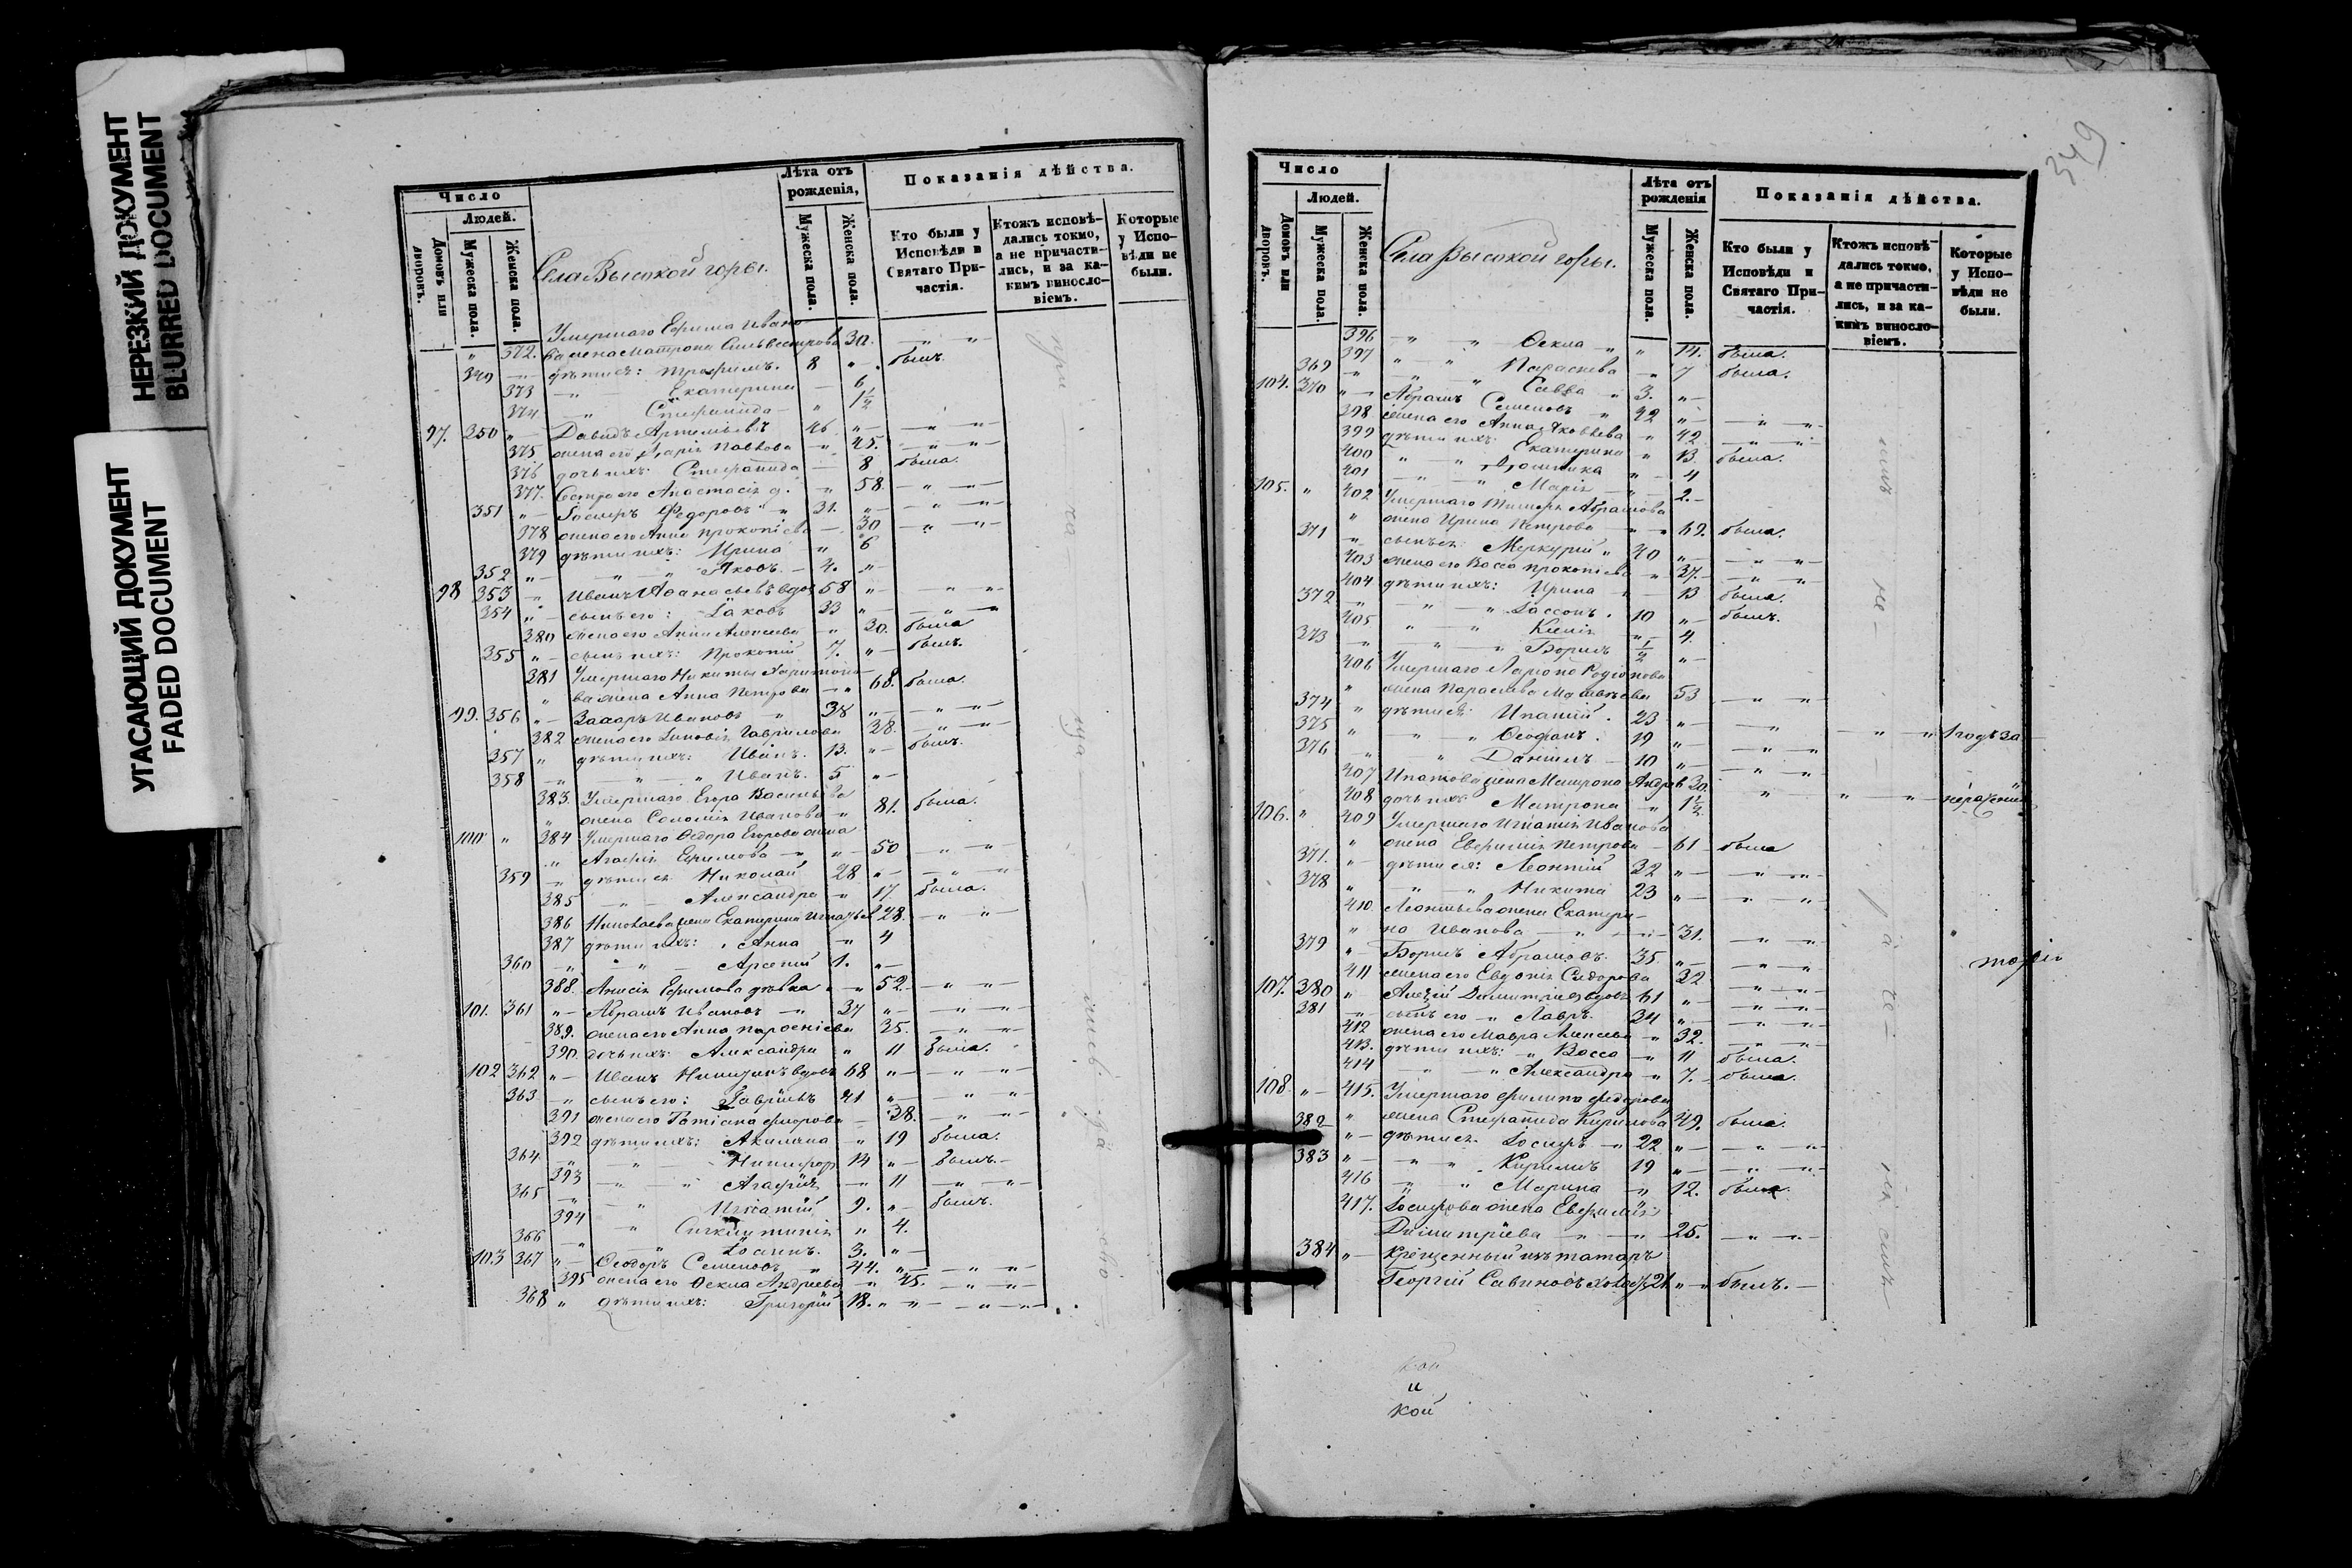 НЕРЕЗКИЙ ДОКУМЕНТ
BLURRED DOCUMENT
УГАСАЮЩИЙ ДОКУМЕНТ
FADED DOCUMENT
Число
Людей.
Домовъ или дворовъ.
Мужеска пола.
Женска пола.
Села Высокой горы.
Лѣта отъ рожденія,
Мужеска пола.
Женска пола.
Показанія дѣйства.
Кто были у Исповѣди и Святаго Причастія.
Ктожъ исповѣдались токмо, а не причастились, и за какимъ винословіемъ.
Которые у Исповѣди не были.
Умершаго Ефима Ивано
" 372. ва жена Матрона Сильвестрова 30. — " —
349 — дѣти ея: Трофимъ. 8 " . былъ.
373 — " Екатерина — 6
374 — " Стефанида — " 1½
97. 350 " — Давидъ Артемьевъ 46 " — — " —
375 жена его Дарія Павлова — " 45. — " —
376 дочь ихъ: Стефанида — 8 была.
377. Сестра его Анастасія д. " 58. — " —
351 " — Іосифъ Федоровъ " 31. " — — " —
378 жена его Анна Прокопіева — 30 — " —
379 дѣти ихъ: Ирина " 6
352 " — — " Яковъ. — 4. " —
98 353 — " Иванъ Афанасьевъ вдов 58 " — — " —
354 " — сынъ его: Іаковъ 33 " — — " —
380 жена его Анна Алексеева — " 30. была
355 " — сынъ ихъ: Прокопій 7. " — былъ.
381 Умершаго Никиты Харитоно
" ва жена Анна Петрова — " 68. была.
99. 356 " — Захаръ Ивановъ " 38 " — — " —
382 жена его Зиновія Гаврилова 28. — " —
257 " дѣти ихъ: Иванъ. 13. " — былъ.
358 — " — " Иванъ. 5 " —
383. Умершаго Егора Васильева
" жена Соломія Иванова — " 81. была.
100 " 384 Умершаго Ѳедора Егорова жена
" Агафія Ефимова — " " — 50 — " —
359 — " дѣти ея Николай 28 " — — " —
385 — " — Александра — " 17. была.
386 Николаева жена Екатерина Игнатьев 28. — " —
387 дѣти ихъ: Анна — " 4
360 — " — " — Арсеній 1. " —
388. Анисія Ефимова дѣвка " " 52. — " —
101. 361 " — Абрамъ Ивановъ — " 37 " — — " —
389. жена его Анна Парфеніева 35. — " —
390. дочь ихъ: Александра " 11 была.
102 362 " — Иванъ Никитинъ вдовъ 68 " — — " —
363 — " сынъ его: Гавріилъ 41 " — — " —
391 жена его Татіана Федорова — 38. — " —
392 дѣти ихъ: Акилина — " 19 была.
364 — " — " — Никифоръ 14 " — былъ. —
393 — " — " Агафія — " 11 — " —
365 — " — " Игнатій 9. " — былъ.
394 — " " 4.
366 — " — " Іоаннъ. 3. " —
103 367 " — Ѳеодоръ Семеновъ " 44. " — — " —
395 жена его Ѳекла Андреева — " 45. — " —
368 " дѣти ихъ: Григорій 18. " " — — " —
349
Число
Людей.
Домовъ или дворовъ.
Мужеска пола.
Женска пола.
Села Высокой горы.
Лѣта отъ рожденія
Мужеска пола.
Женска пола.
Показанія дѣйства.
Кто были у Исповѣди и Святаго Причастія.
Ктожъ исповѣдались токмо, а не причастились, и за какимъ винословіемъ.
Которые у Исповѣди не были.
396 — " — " Ѳекла — " " 14. была.
397 — " — " Параскева — " 7 была.
369 — " — " Савва " 3. " —
104. 370 " — Абрамъ Семеновъ " 42 " — — " —
398 жена его Анна Яковлева — " 42 — " —
399 дѣти ихъ: Екатерина — " 13 была.
400 " — " " — 4
401 — " — " Марія — " 2. —
105. " 402 Умершаго Абрамова
" жена Ирина Петрова — " 62. была.
371 — " сынъ ея: Меркурій " 40 " — — " —
403 жена его Васса Прокопіева — " 37. — " —
404 дѣти ихъ: Ирина — " 13 была.
372 — " — " Іассонъ. 10 " — былъ.
405 " — " — 4.
373 — " — " Борисъ ½ " —
406 Умершаго Родіонова
" жена Параскева Матвѣева 53 — " —
374 " дѣти ея: Ипатій. 23 " — — " — — " — " 1 годъ за
375 " — " Ѳеофанъ. 19 " — — " —
376 — " — " Даніилъ — 10 " — — " —
407 Ипатова жена Матрона Андрев 30. " — " — " — нераденіи
408 дочь ихъ: Матрона — " 1½
106. " 409 Умершаго Игнатія Иванова
" жена Евфимія Петрова — 61 — была
371. " — дѣти ея: Леонтій 32 " — — " —
378 " " — " Никита 23 " — — " —
410 Леонтьева жена Екатери-
" на Иванова — " — " — 31. — " —
379 " — Борисъ Абрамовъ. 35 " — — " —
411 жена его Евдокія Сидорова 32 — " —
107. 380 " Алексій Димитріевъ вдовъ 61 " — — " —
281 — сынъ его " Лавръ. 34 " — — " —
412 жена его Мавра Алексеева " 32. — " —
413. дѣти ихъ: " Васса — " 11 была.
414 — " — " Александра — " 7. — была.
108. " — 415. Умершаго Филипа Федорова
" жена Стефанида Кирилова 49. была.
382 " — дѣти ея: Іосифъ — " 22 " — — " —
383 " — — " — " Кирилъ 19 " — — " —
416 — " — " Марина — " 12. была.
417. Іосифова жена Евфимія
Димитріева " — " 25. — " —
384 " — Крещенный изъ татаръ
Георгій Савиновъ 21 " — " былъ. —
кой
и
кой